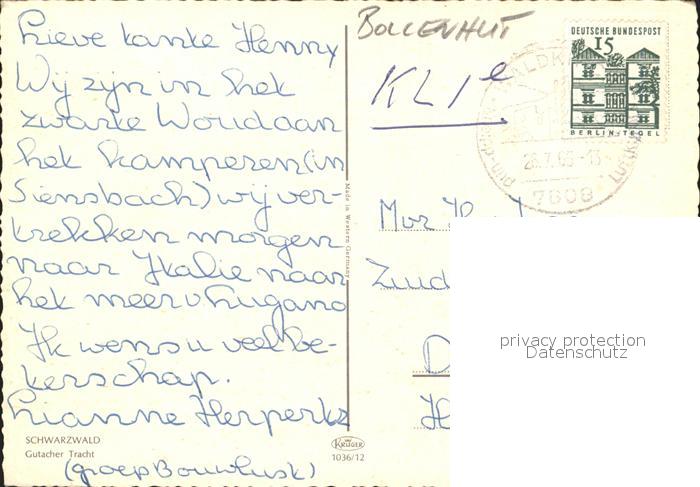 Lieve tante Henny
Wij zyn in het
zwarte Woud aan
het kamperen (in
Siensbach) wij ver-
trekken morgen
naar Italie naar
het meer v Lugano
Ik wens u veel be-
terschap.
Lianne Herperts
(groep Bouwlust)
SCHWARZWALD
Gutacher Tracht
Made in Western Germany
KRÜGER
1036/12
BOLLENHUT
KL 1e
DEUTSCHE BUNDESPOST
15
BERLIN-TEGEL
WALDK
7808
Mvr
Zuid
privacy protection
Datenschutz